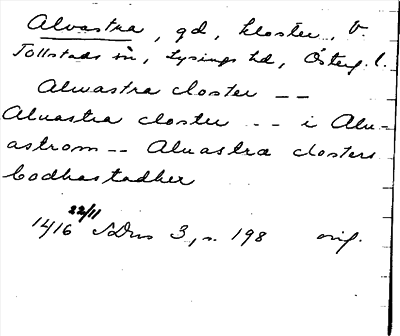 Alvastra, gd, kloster, V.
Tollstads sn, Lysings hd, Österg. l.
Aluastra closter --
Aluastra closter -- i Alu-
astrom -- Aluastra closters
bodhastadher
1416 22/11 SDns 3, s. 198 orig.